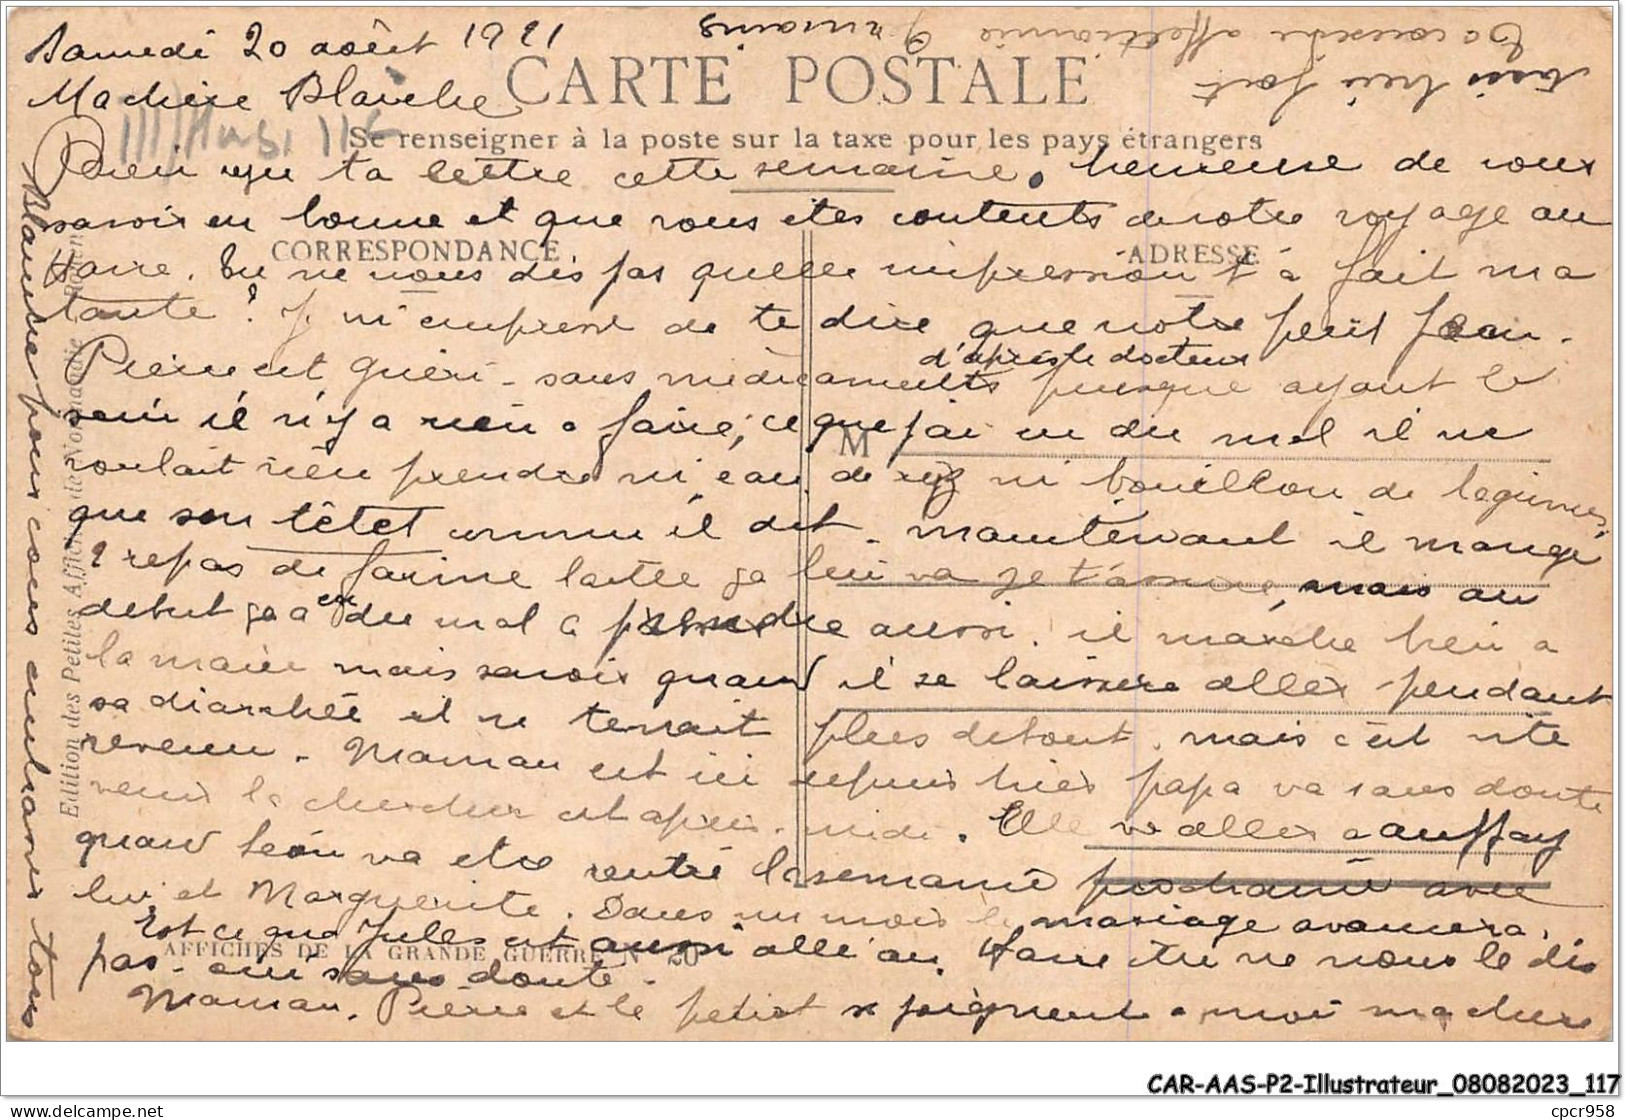 Samedi 20 août 1921
CARTE POSTALE
Ma chère Blanche
Se renseigner à la poste sur la taxe pour les pays étrangers
Bien reçu ta lettre cette semaine. heureuse de vous
savoir en bonne et que vous êtes contents de votre voyage au
CORRESPONDANCE
ADRESSE
Havre. tu ne nous dis pas quelle impression t'a fait ma
tante? Je m'empresse de te dire que notre petit Jean-
d'après le docteur
Pierre est guéri - sans médicaments puisque ayant le
sein il n'y a rien à faire; ce que j'ai eu du mal il ne
M
voulait rien prendre ni eau de riz ni bouillon de légumes,
que son têtet comme il dit. maintenant il mange
2 repas de farine lactée ça lui va je t'assure, mais au
début ça a eu du mal à prendre aussi. il marche bien à
la main mais savoir quand il se laissera aller - pendant
sa diarrhée il ne tenait plus debout. mais c'est vite
revenu - Maman est ici depuis hier papa va sans doute
venir la chercher cet après-midi. Elle va aller à Auffay
quand Léon va etre rentré la semaine prochaine avec
lui et Marguerite. Dans un mois le mariage avancera.
Est ce que Jules est aussi allé au Havre tu ne nous le dis
AFFICHES DE LA GRANDE GUERRE N° 20
pas - oui sans doute.
Maman. Pierre et le petiot se joignent à moi ma chère
Blanche pour vous embrasser tous
Edition des Petites Affiches de Normandie Rouen
tous très fort
Ta cousine affectionnée Germaine
CAR-AAS-P2-Illustrateur_08082023_117
delcampe.net
cpcr958